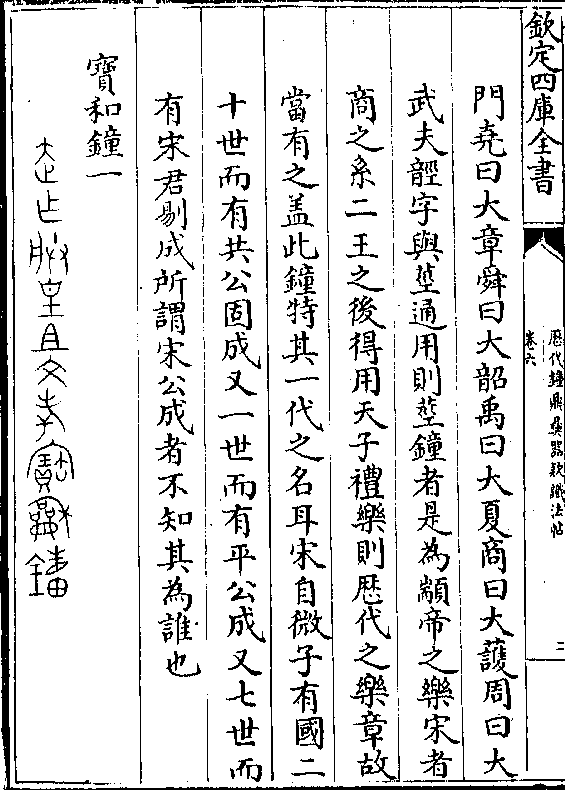 欽定四庫全書
歴代鐘鼎彝器款識法帖
卷六
三
門堯曰大章舜曰大韶禹曰大夏商曰大濩周曰大
武夫䪫字與莖通用則莖鐘者是為顓帝之樂宋者
商之系二王之後得用天子禮樂則歴代之樂章故
當有之盖此鐘特其一代之名耳宋自微子有國二
十世而有共公固成又一世而有平公成又七世而
有宋君剔成所謂宋公成者不知其為誰也
寶和鐘一
皇且文考寶龢鐘